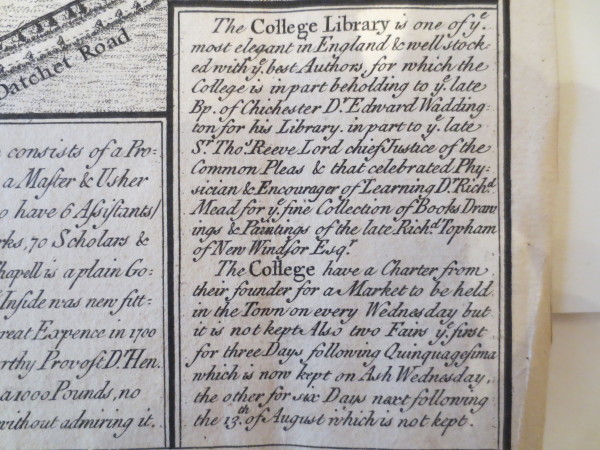 Datchet Road
consists of a Pro-
a Master & Usher
o have 6 Assistants/
rks, 70 Scholars &
hapell is a plain Go-
Inside was new fitt-
reat Expence in 1700
orthy Provost Dr. Hen.
a 1000 Pounds, no
without admiring it.
The College Library is one of ye.
most elegant in England & well stock
ed with ye. best Authors, for which the
College is in part beholding to ye. late
Bp. of Chichester Dr. Edward Wadding-
ton for his Library. in part to ye. late
Sr. Tho.s Reeve Lord chief Justice of the
Common Pleas & that celebrated Phy-
sician & Encourager of Learning Dr. Richd.
Mead for ye. fine Collection of Books Draw
ings & Paintings of the late Richd. Topham
of New Windsor Esqr.
The College have a Charter from
their founder for a Market to be held
in the Town on every Wednesday but
it is not kept Also two Fairs ye. first
for three Days following Quinquagesima
which is now kept on Ash Wednesday,
the other for six Days next following
the 13th. of August which is not kept.